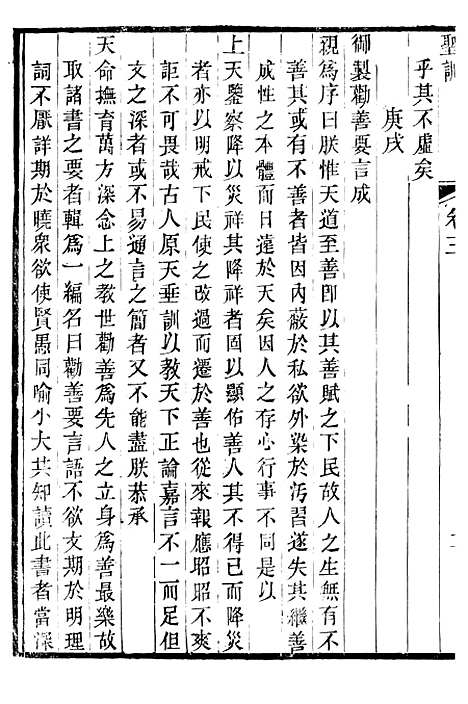 聖訓 卷三
乎其不虛矣
庚戌
御製勸善要言成
親爲序曰朕惟天道至善卽以其善賦之下民故人之生無有不
善其或有不善者皆因內蔽於私欲外染於汚習遂失其繼善
成性之本體而日遠於天矣因人之存心行事不同是以
上天鑒察降以災祥其降祥者固以顯佑善人其不得已而降災
者亦以明戒下民使之改過而遷於善也從來報應昭昭不爽
詎不可畏哉古人原天垂訓以教天下正論嘉言不一而足但
文之深者或不易通言之簡者又不能盡朕恭承
天命撫育萬方深念上之教世勸善爲先人之立身爲善最樂故
取諸書之要者輯爲一編名曰勸善要言語不欲文期於明理
詞不厭詳期於曉衆欲使賢愚同喻小大共知讀此書者當深